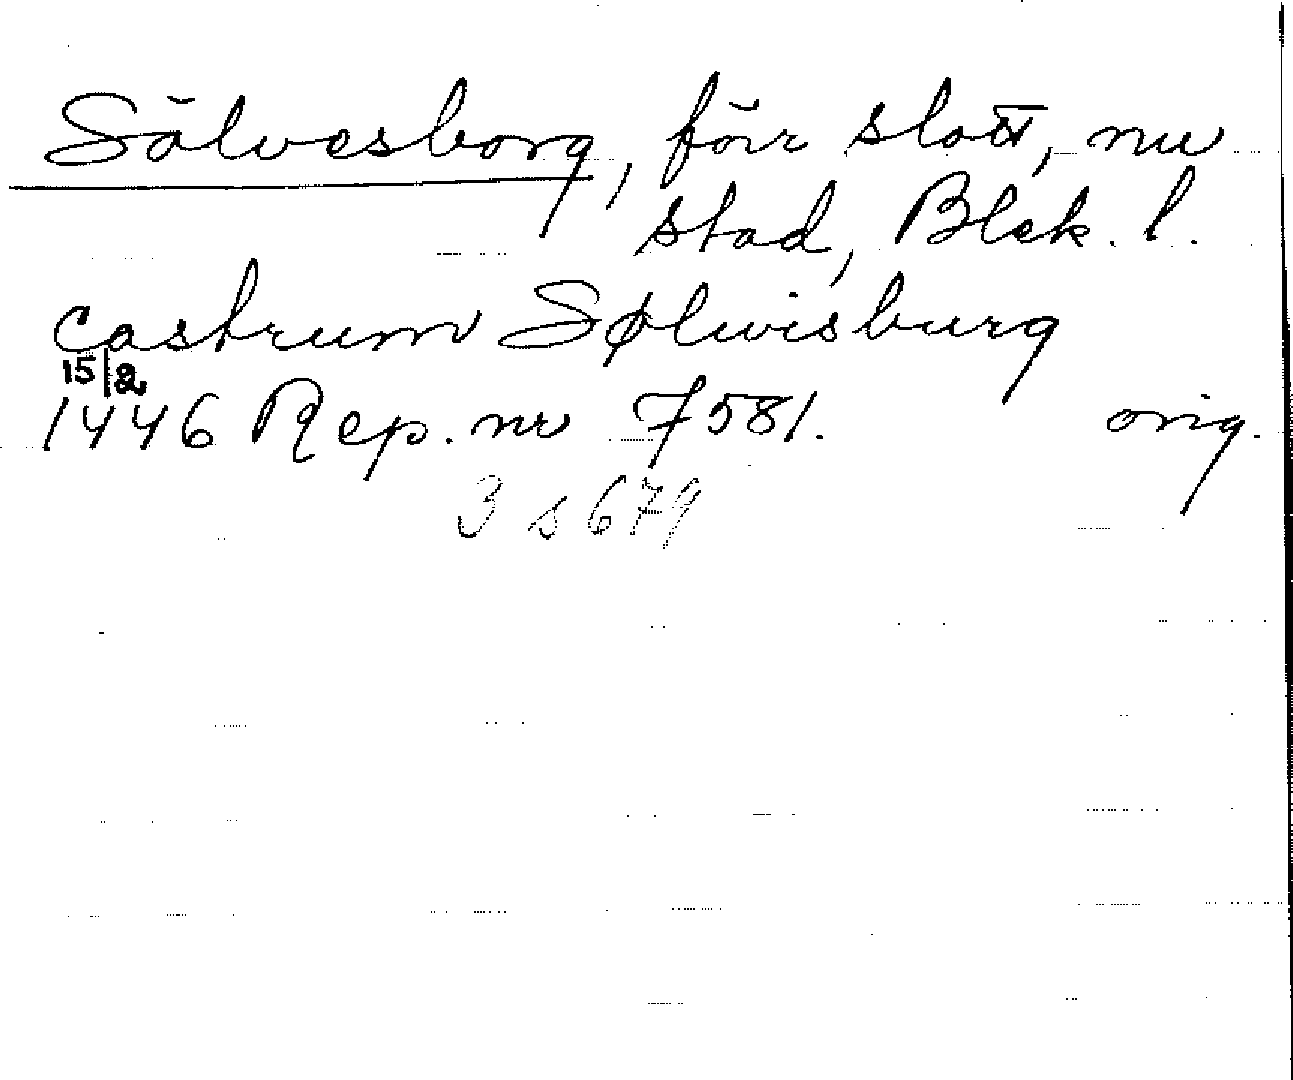 Sölvesborg, förr slott, nu
stad, Blek. l.
castrum Sølwisburg
15/2
1446 Rep. nr 7581. orig.
3 s 679